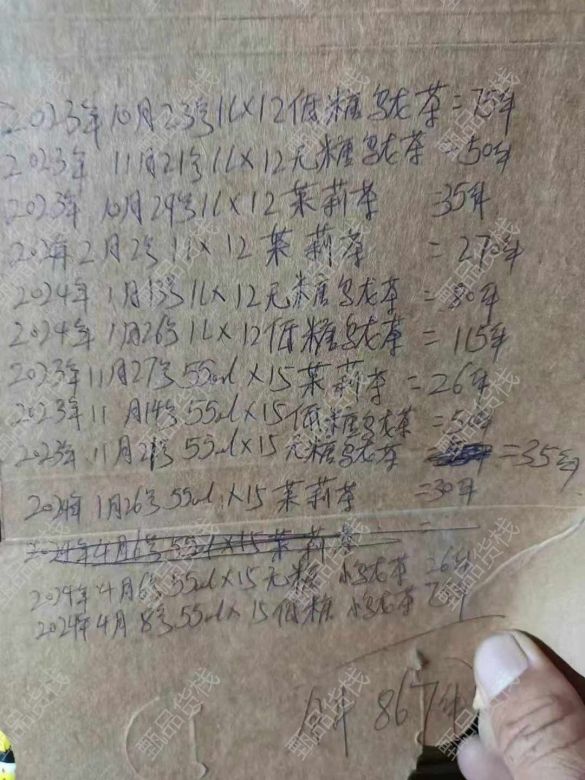 2023年10月23号1L×12低糖乌龙茶=75件
2023年11月21号1L×12无糖乌龙茶=50件
2023年10月29号1L×12茉莉茶=35件
2024年2月2号1L×12茉莉茶=270件
2024年1月13号1L×12无糖乌龙茶=80件
2024年1月26号1L×12低糖乌龙茶=115件
2023年11月27号550ml×15茉莉茶=26件
2023年11月14号550ml×15低糖乌龙茶=50件
2023年11月21号550ml×15无糖乌龙茶=35件
2024年1月26号550ml×15茉莉茶=30件
2024年4月6号550ml×15茉莉茶=
2024年4月6号550ml×15无糖小乌龙茶26件
2024年4月8号550ml×15低糖小乌龙茶75件
867件
甄品货栈